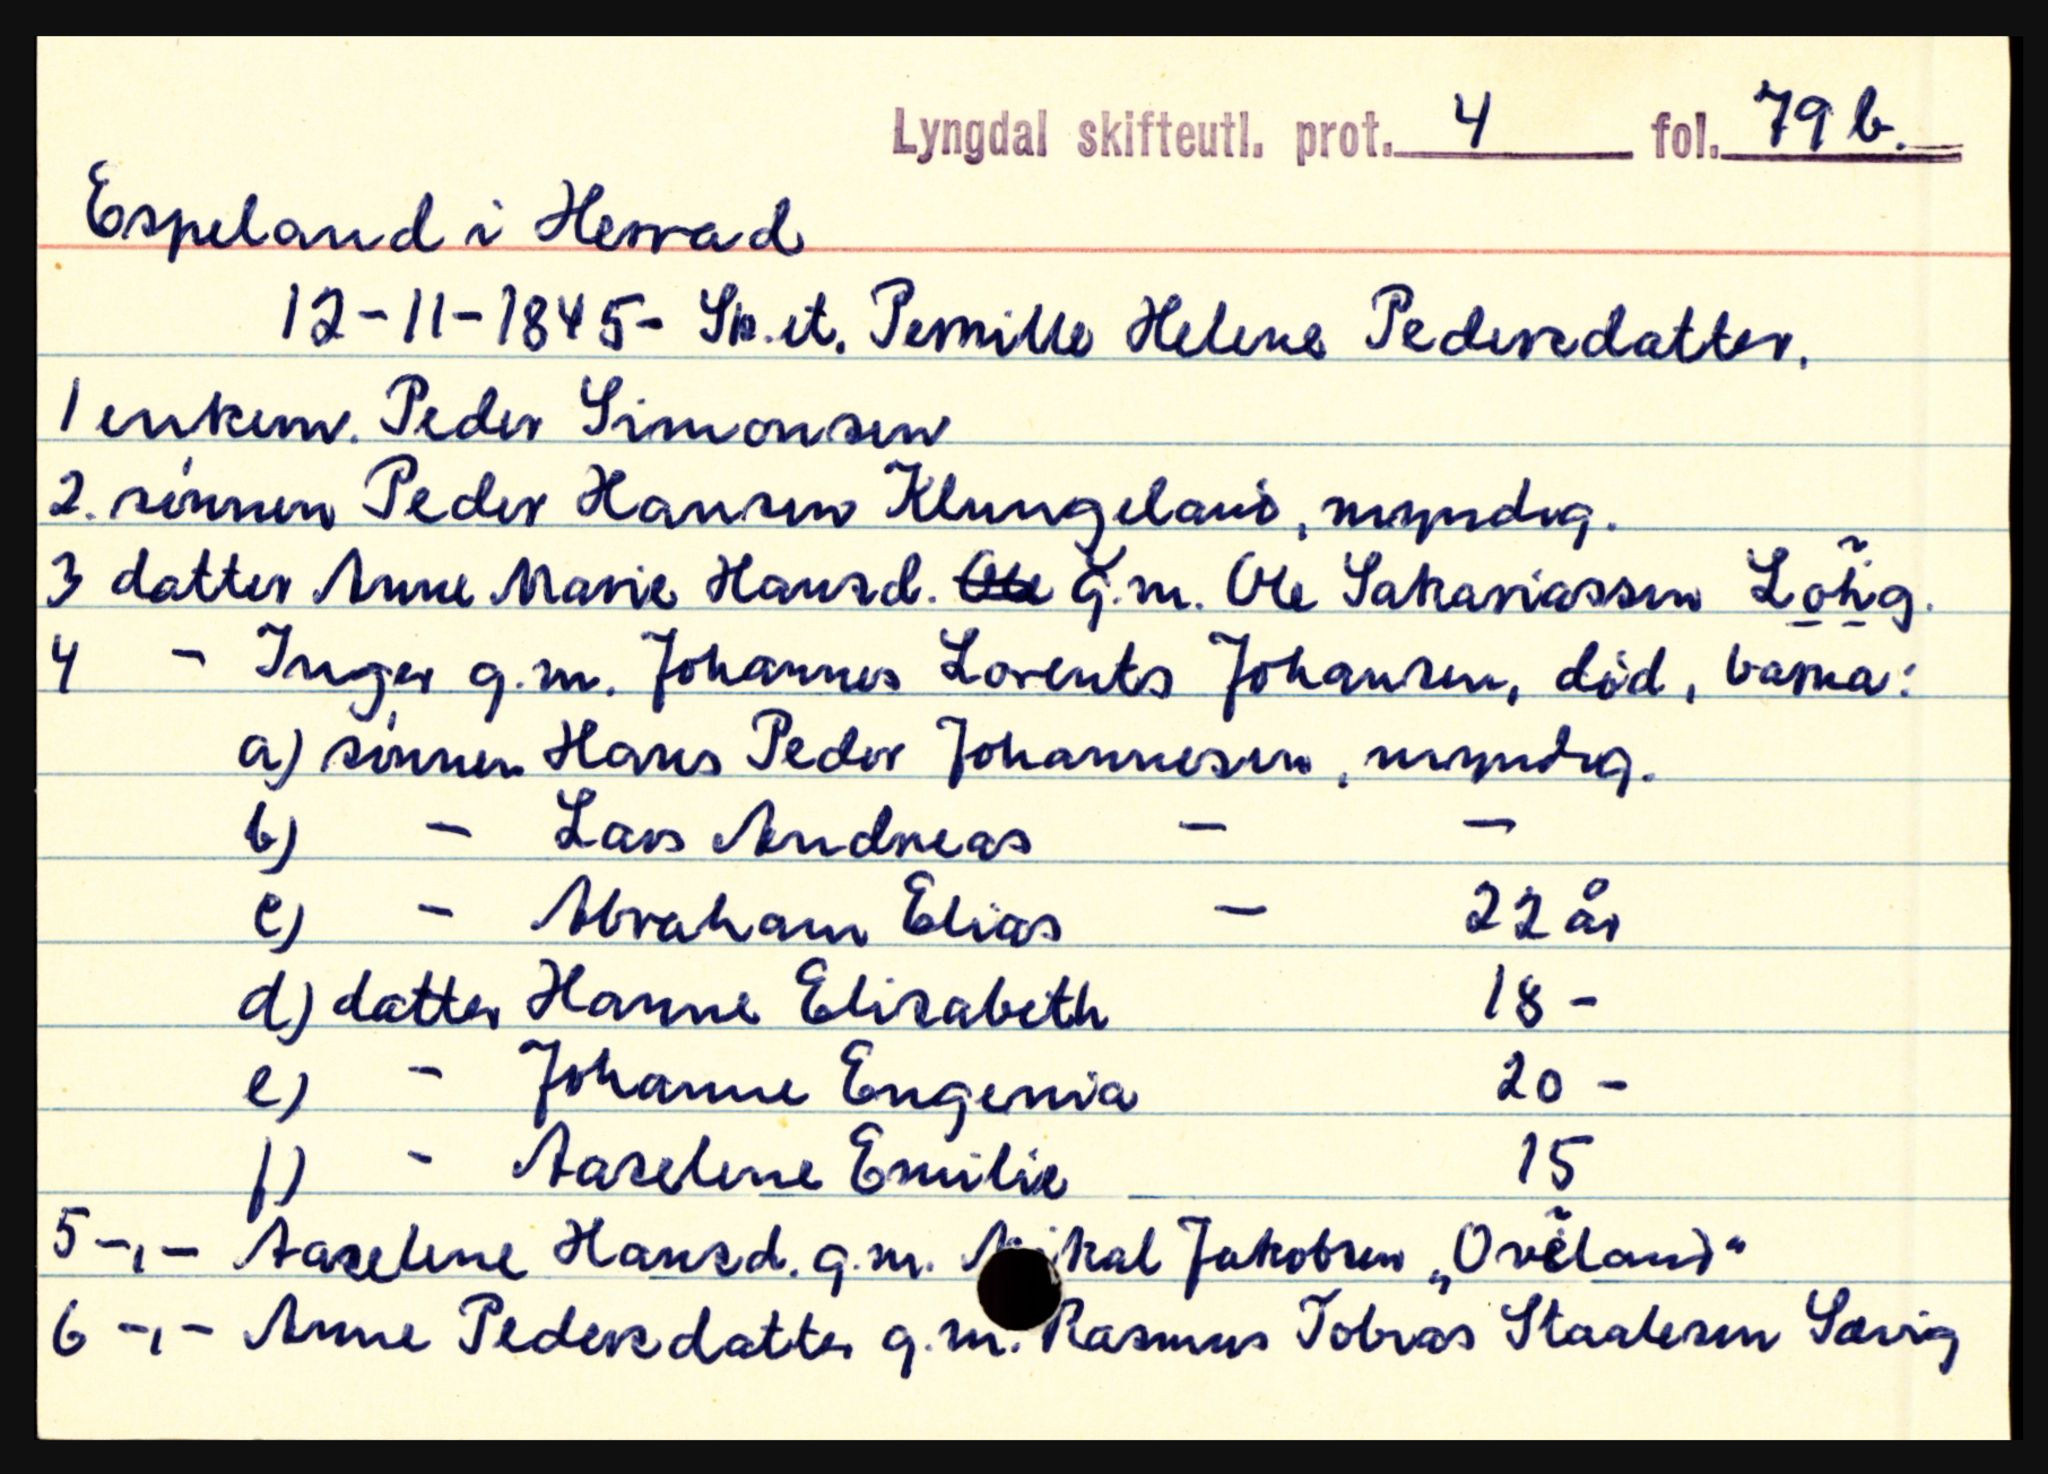 Lyngdal skifteutl. prot. 4 fol. 79 b.
Espeland i Herrad
12-11-1845- Sk. et. Pernille Helene Pedersdatter.
1 enkem. Peder Simonsen
2. sønnen Peder Hansen Klungeland, myndig.
3 datter Anne Marie Hansd. ~~Ole~~ G.m. Ole Sakariassen
4 - Inger g.m. Johannes Lorents Johansen, død, barna:
a) sønnen Hans Peder Johannesen, myndig.
b) - Lars Andreas - -
c) - Abraham Elias - 22 år
d) datter Hanne Elisabeth 18 -
e) - Johanne Eugenia 20 -
f) - Aaselene Emilie 15
5 -,- Aaselene Hansd. g.m. Mikal Jakobsen „Oveland"
6 -,- Anne Pedersdatter g.m. Rasmus Tobias Staalesen Sævig